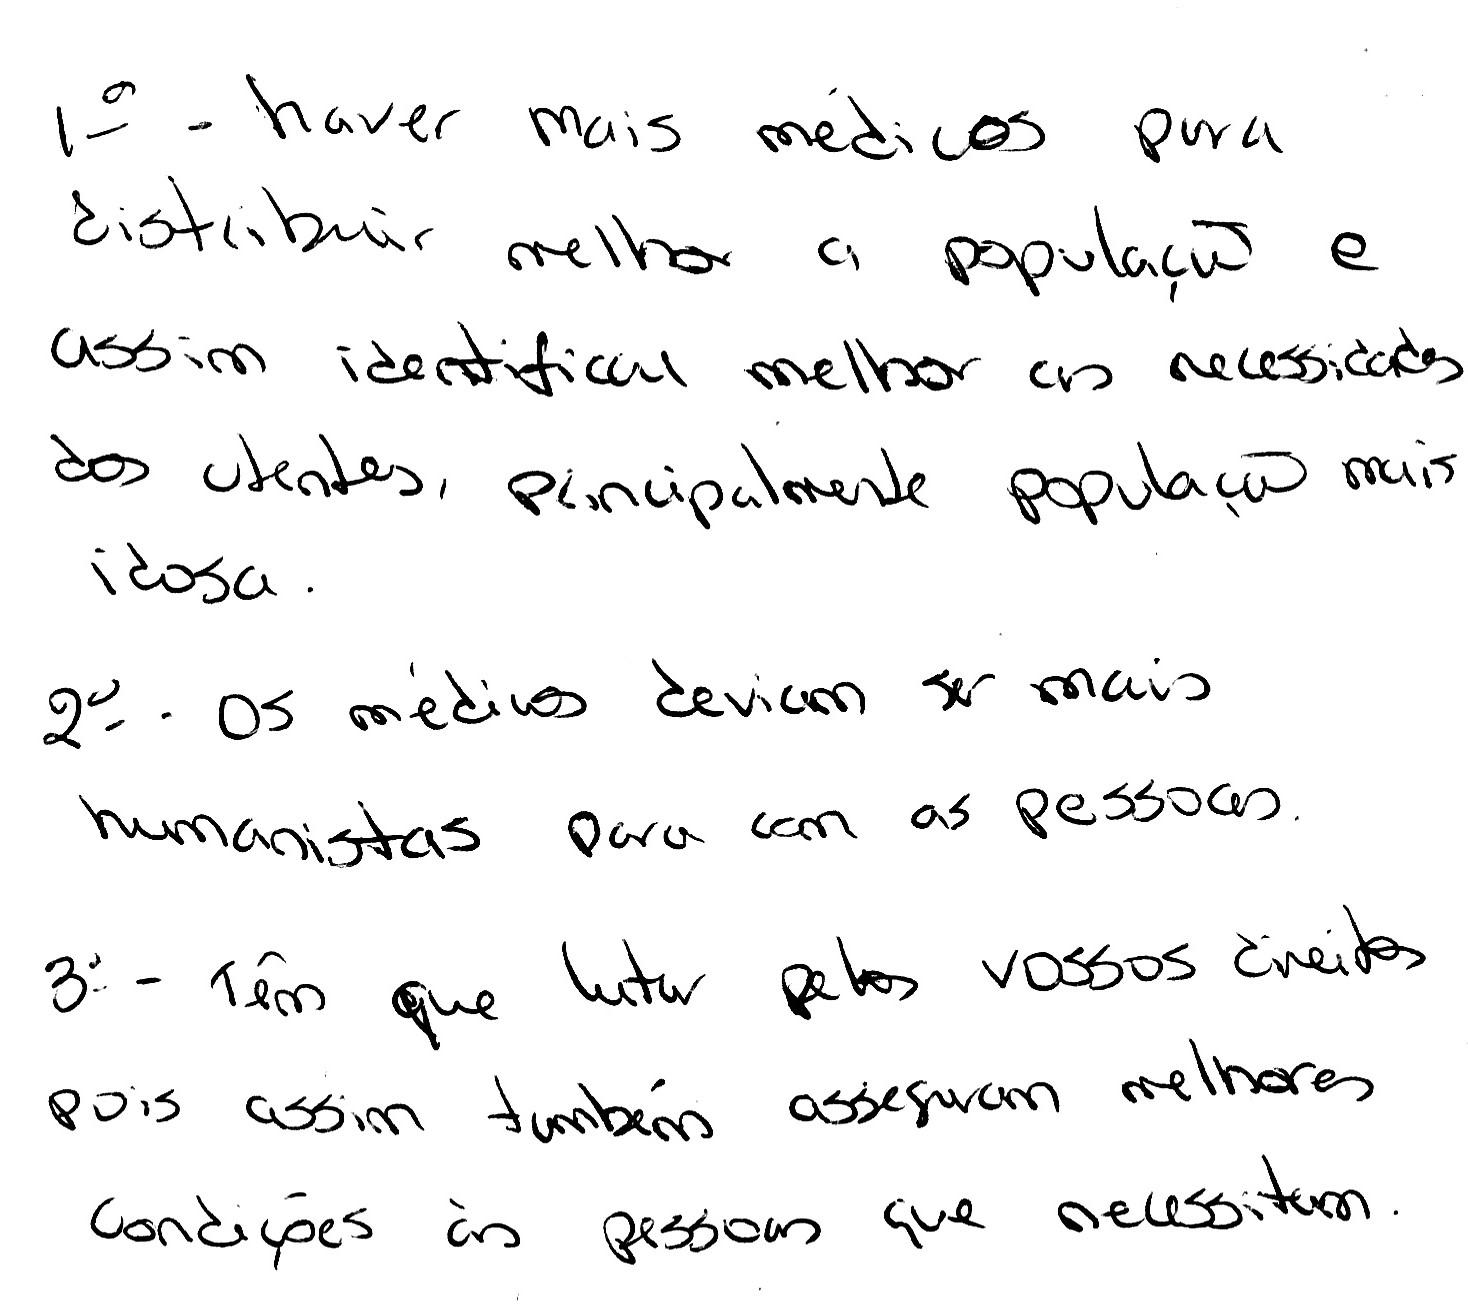 1º - haver mais médicos para
distribuir melhor a população e
assim identificar melhor as necessidades
dos utentes, principalmente população mais
idosa.
2º - Os médicos deviam ser mais
humanistas para com as pessoas.
3º - Têm que lutar pelos vossos direitos
pois assim também asseguram melhores
condições às pessoas que necessitam.